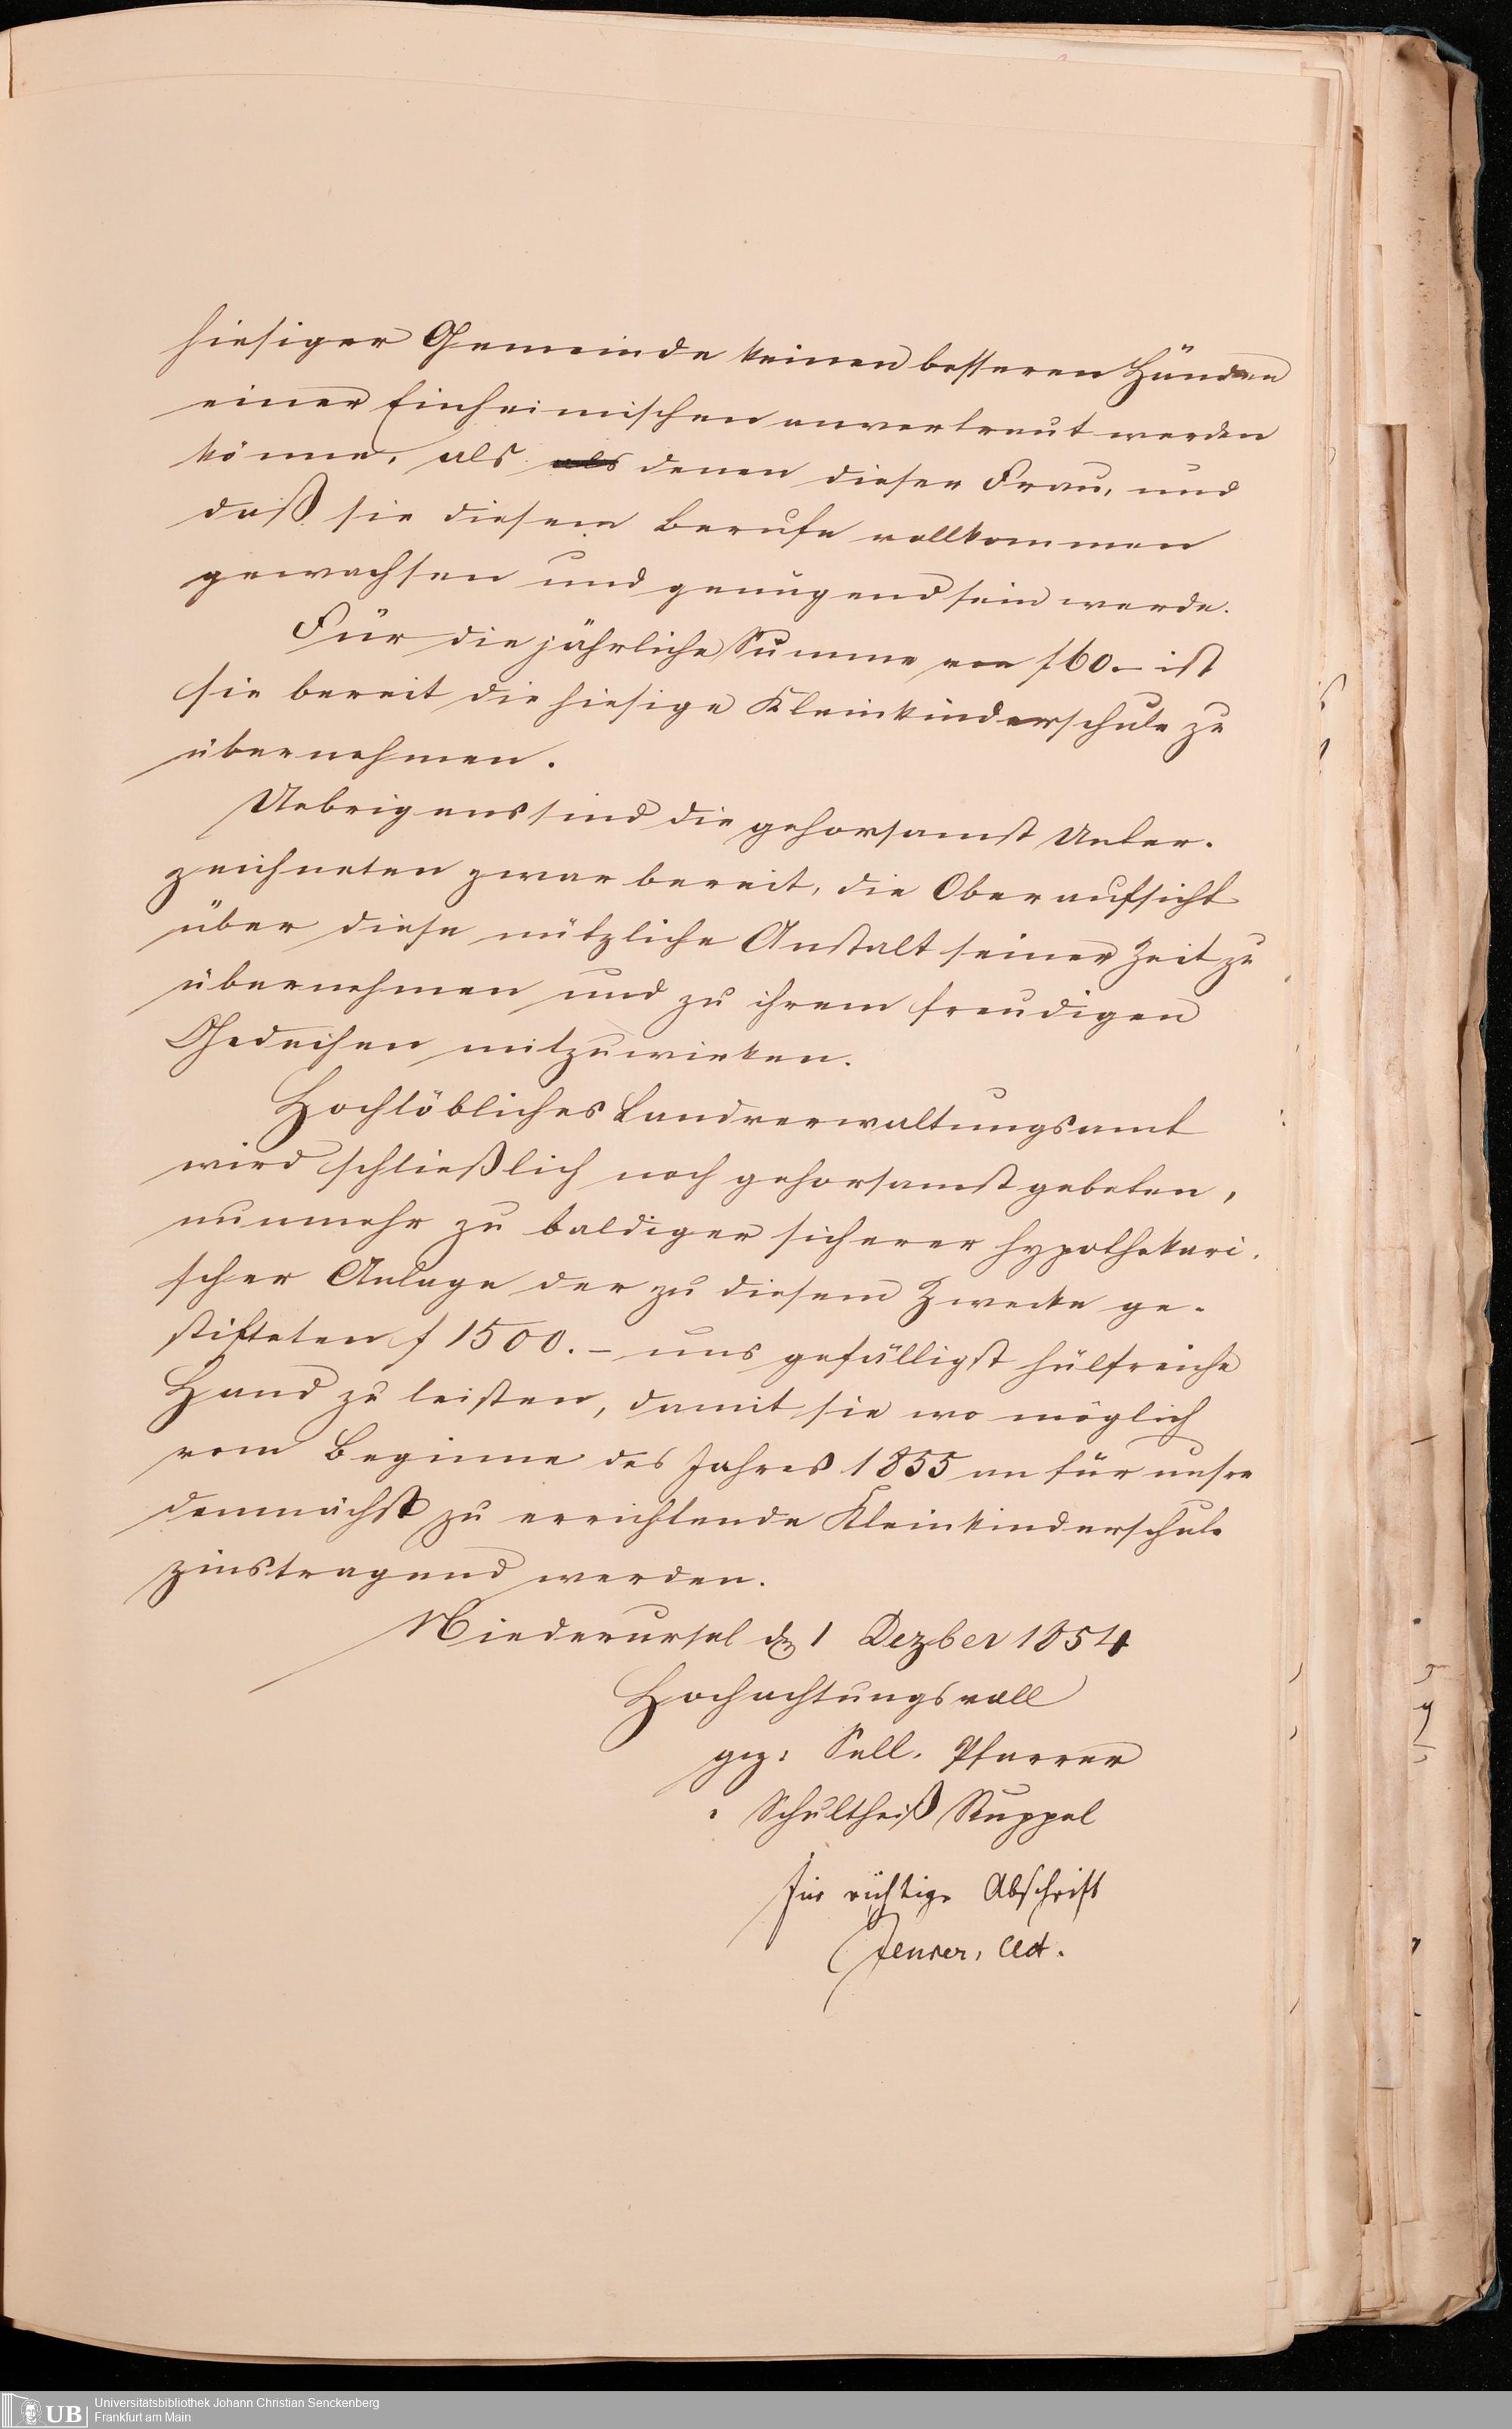 hiesiger Gemeinde keinen besseren Händen
einer Einheimischen anvertraut werden
könne, als denen dieser Frau, und
daß sie diesem Berufe vollkommen
gewachsen und genügend sein werde.
Für die jährliche Summe von f 60.– ist
sie bereit die hiesige Kleinkinderschule zu
übernehmen.
Uebrigens sind die gehorsamst Unter-
zeichneten zwar bereit, die Oberaufsicht
über diese nützliche Anstalt seiner Zeit zu
übernehmen und zu ihrem freudigen
Gedeihen mitzuwirken.
Hochlöbliches Landverwaltungsamt
wird schließlich noch gehorsamst gebeten,
nunmehr zu baldiger sicherer hypothekari-
scher Anlage der zu diesem Zwecke ge-
stifteten f 1500.– uns gefälligst hülfreiche
Hand zu leisten, damit sie wo möglich
vom Beginne des Jahres 1855 an für unsre
demnächst zu errichtende Kleinkinderschule
zinstragend werden.
Niederursel den 1 Dezber 1854
Hochachtungsvoll
gez: Sell. Pfarrer
" Schultheiß Ruppel
Für richtige Abschrift
Act.
Universitätsbibliothek Johann Christian Senckenberg
UB Frankfurt am Main